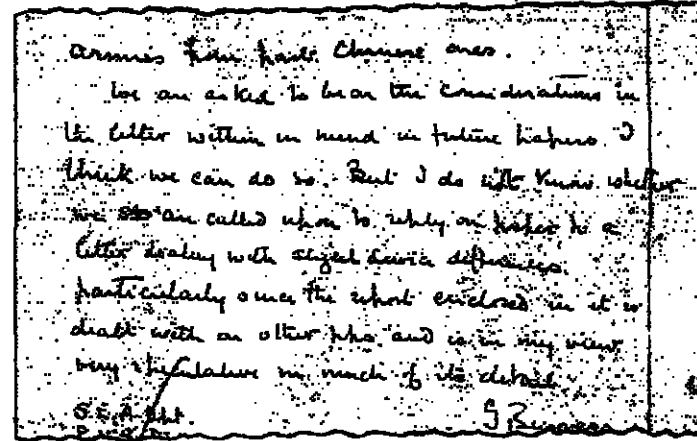 armies from        Chinese ones.
We are asked to bear the considerations in
the letter within in mind in future papers. I
think we can do so. But I do not know whether
we are called upon to reply on paper to a
letter dealing with alleged        differences.
particularly since the report enclosed in it is
dealt with on other        and is in my view
very speculative in much of its detail.
S.E.A. Dpt.
G Burgess